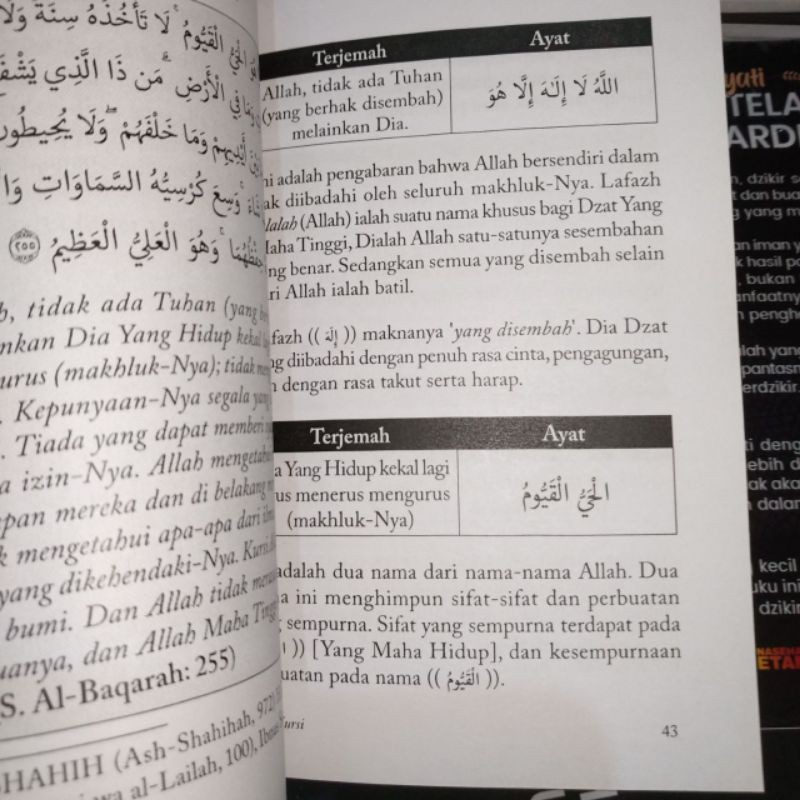 الْحَيُّ الْقَيُّومُ لَا تَأْخُذُهُ سِنَةٌ وَلَا
فِي الْأَرْضِ مَن ذَا الَّذِي يَشْفَ
أَيْدِيهِمْ وَمَا خَلْفَهُمْ وَلَا يُحِيطُو
وَسِعَ كُرْسِيُّهُ السَّمَاوَاتِ وَا
حِفْظُهُمَا وَهُوَ الْعَلِيُّ الْعَظِيمُ ٢٥٥
h, tidak ada Tuhan (yang
nkan Dia Yang Hidup kekal
urus (makhluk-Nya); tidak
. Kepunyaan-Nya segala yang
. Tiada yang dapat memberi
a izin-Nya. Allah mengetahui
pan mereka dan di belakang
k mengetahui apa-apa dari
yang dikehendaki-Nya. Kursi
bumi. Dan Allah tidak
uanya, dan Allah Maha Tinggi
S. Al-Baqarah: 255)
SHAHIH (Ash-Shahihah, 972)
wa al-Lailah, 100),
Terjemah Ayat
Allah, tidak ada Tuhan
(yang berhak disembah)
melainkan Dia.
اللَّهُ لَا إِلَهَ إِلَّا هُوَ
ni adalah pengabaran bahwa Allah bersendiri dalam
ak diibadahi oleh seluruh makhluk-Nya. Lafazh
lalah (Allah) ialah suatu nama khusus bagi Dzat Yang
Maha Tinggi, Dialah Allah satu-satunya sesembahan
ng benar. Sedangkan semua yang disembah selain
ri Allah ialah batil.
afazh (( إِلَهَ )) maknanya 'yang disembah'. Dia Dzat
ng diibadahi dengan penuh rasa cinta, pengagungan,
n dengan rasa takut serta harap.
Terjemah Ayat
a Yang Hidup kekal lagi
us menerus mengurus
(makhluk-Nya)
الْحَيُّ الْقَيُّومُ
adalah dua nama dari nama-nama Allah. Dua
a ini menghimpun sifat-sifat dan perbuatan
g sempurna. Sifat yang sempurna terdapat pada
)) [Yang Maha Hidup], dan kesempurnaan
uatan pada nama (( الْقَيُّومُ )).
ursi
43
yati
TELA
ARDI
n, dzikir s
t dan bua
g yang m
an iman y
k hasil po
, bukan
anfaatny
n pengho
lah yang
pantasm
erdzikir.
ti deng
ebih d
ak aka
dalar
) kecil
uku ini
dzikir
NASEHA
ETAR